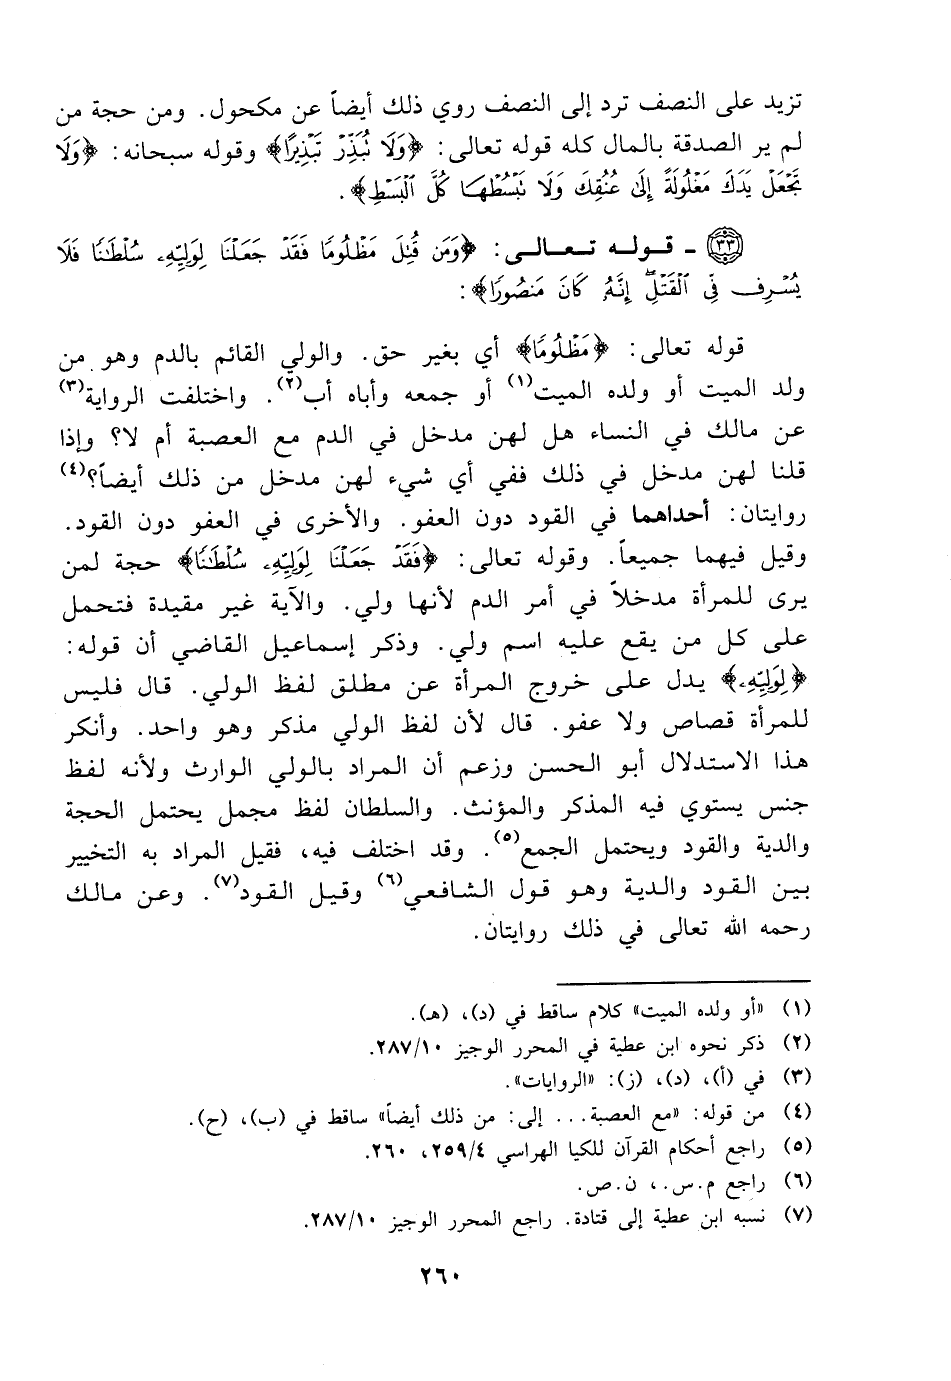 تزيد على النصف ترد إلى النصف روي ذلك أيضاً عن مكحول. ومن حجة من
لم ير الصدقة بالمال كله قوله تعالى: ﴿وَلَا نُبَذِّرْ تَبْذِيرًا﴾ وقوله سبحانه: ﴿وَلَا
تَجْعَلْ يَدَكَ مَغْلُولَةً إِلَىٰ عُنُقِكَ وَلَا تَبْسُطْهَا كُلَّ ٱلْبَسْطِ﴾.
(٣٣) - قوله تعالى: ﴿وَمَن قُتِلَ مَظْلُومًا فَقَدْ جَعَلْنَا لِوَلِيِّهِۦ سُلْطَٰنًا فَلَا
يُسْرِف فِّى ٱلْقَتْلِ ۖ إِنَّهُۥ كَانَ مَنصُورًا﴾:
قوله تعالى: ﴿مَظْلُومًا﴾ أي بغير حق. والولي القائم بالدم وهو من
ولد الميت أو ولده الميت(١) أو جمعه وأباه أب(٢). واختلفت الرواية(٣)
عن مالك في النساء هل لهن مدخل في الدم مع العصبة أم لا؟ وإذا
قلنا لهن مدخل في ذلك ففي أي شيء لهن مدخل من ذلك أيضاً؟(٤)
روايتان: أحداهما في القود دون العفو. والأخرى في العفو دون القود.
وقيل فيهما جميعاً. وقوله تعالى: ﴿فَقَدْ جَعَلْنَا لِوَلِيِّهِۦ سُلْطَٰنًا﴾ حجة لمن
يرى للمرأة مدخلاً في أمر الدم لأنها ولي. والآية غير مقيدة فتحمل
على كل من يقع عليه اسم ولي. وذكر إسماعيل القاضي أن قوله:
﴿لِوَلِيِّهِۦ﴾ يدل على خروج المرأة عن مطلق لفظ الولي. قال فليس
للمرأة قصاص ولا عفو. قال لأن لفظ الولي مذكر وهو واحد. وأنكر
هذا الاستدلال أبو الحسن وزعم أن المراد بالولي الوارث ولأنه لفظ
جنس يستوي فيه المذكر والمؤنث. والسلطان لفظ مجمل يحتمل الحجة
والدية والقود ويحتمل الجمع(٥). وقد اختلف فيه، فقيل المراد به التخيير
بين القود والدية وهو قول الشافعي(٦) وقيل القود(٧). وعن مالك
رحمه الله تعالى في ذلك روايتان.
(١) «أو ولده الميت» كلام ساقط في (د)، (هـ).
(٢) ذكر نحوه ابن عطية في المحرر الوجيز ٢٨٧/١٠.
(٣) في (أ)، (د)، (ز): «الروايات».
(٤) من قوله: «مع العصبة... إلى: من ذلك أيضاً» ساقط في (ب)، (ح).
(٥) راجع أحكام القرآن للكيا الهراسي ٢٥٩/٤، ٢٦٠.
(٦) راجع م.س.، ن.ص.
(٧) نسبه ابن عطية إلى قتادة. راجع المحرر الوجيز ٢٨٧/١٠.
٢٦٠